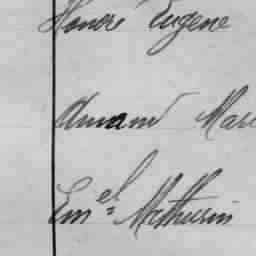 Honoré Eugène
Armand Mar
Em^el= Mathurin